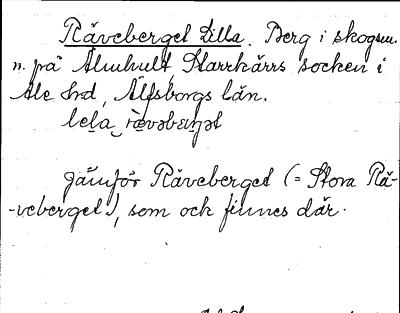 Räveberget Lilla. Berg i skogsm.
n. på Älmhult, Starrkärrs socken i
Ale hd, Älfsborgs län.
lela rävəbærjət
jämför Räveberget (= Stora Rä-
-veberget), som och finnes där.